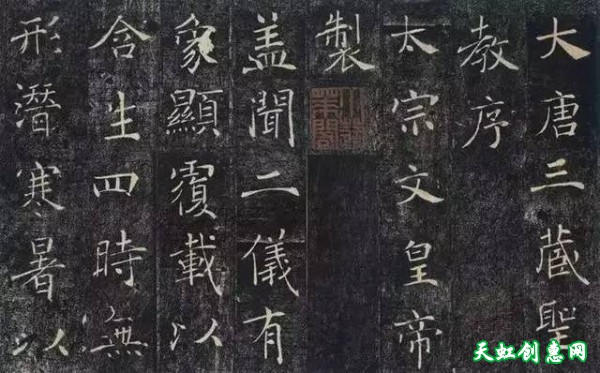 大唐三藏聖
教序
太宗文皇帝
製
盖聞二儀有
象顯覆載以
含生四時無
形潛寒暑以
天虹创惠网